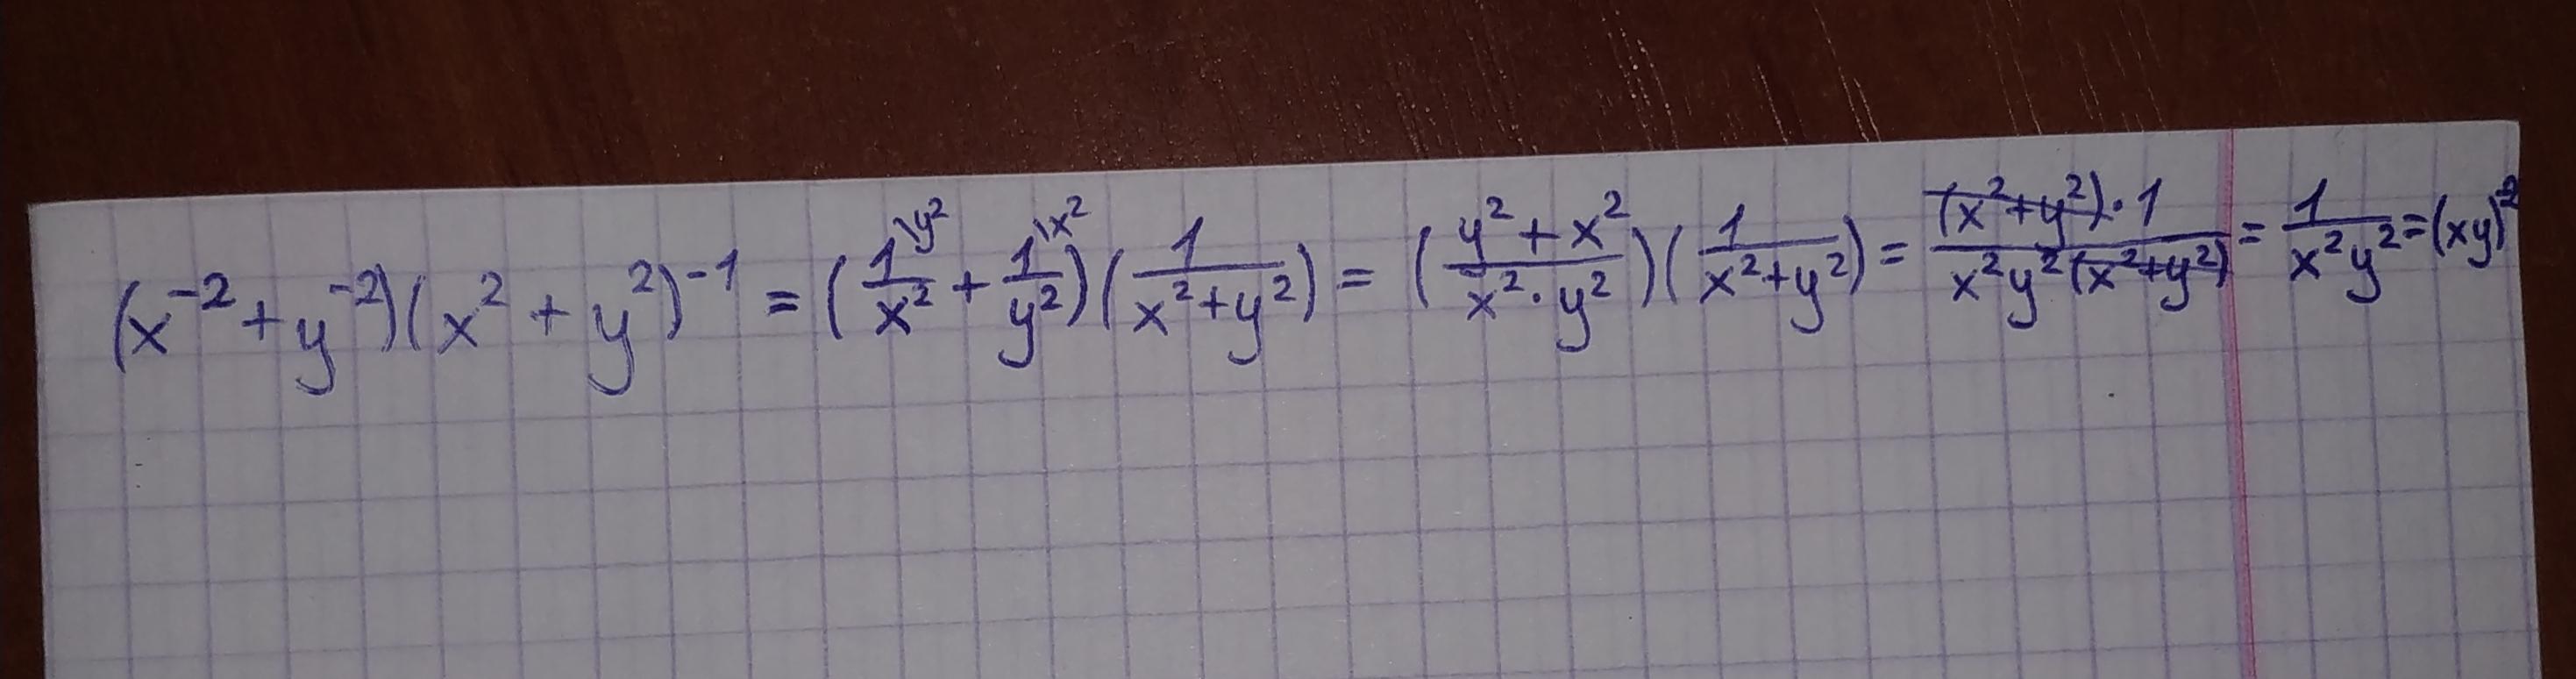 (x^{-2} + y^{-2})(x^2 + y^2)^{-1} = (\frac{1}{x^2}^{\backslash y^2} + \frac{1}{y^2}^{\backslash x^2})(\frac{1}{x^2+y^2}) = (\frac{y^2+x^2}{x^2 \cdot y^2})(\frac{1}{x^2+y^2}) = \frac{(x^2+y^2) \cdot 1}{x^2y^2(x^2+y^2)} = \frac{1}{x^2y^2} = (xy)^2